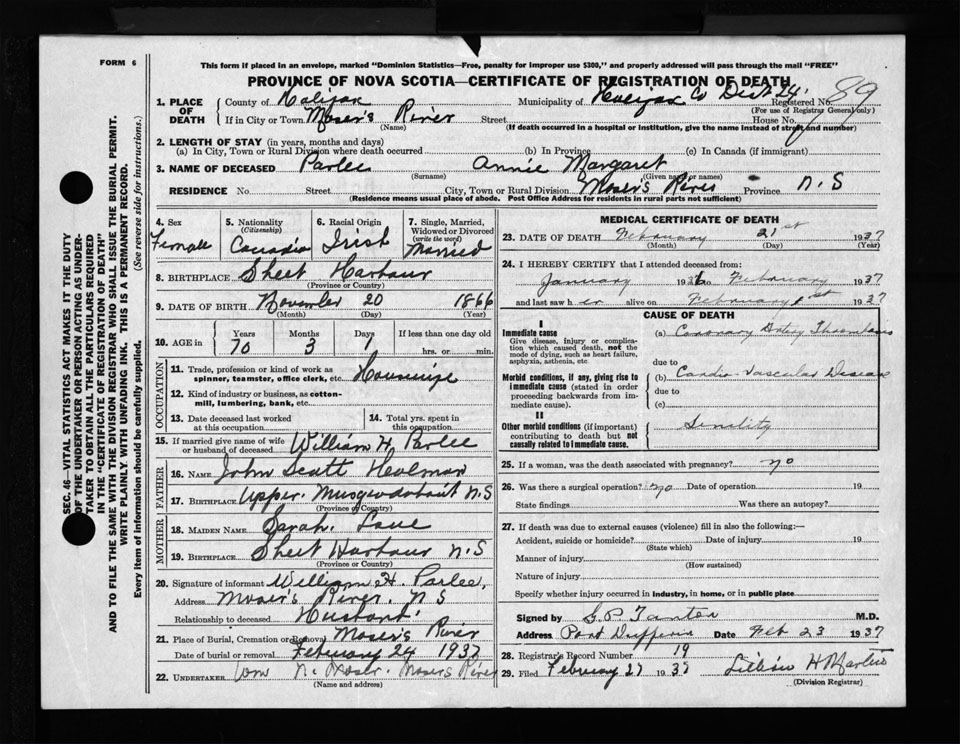 FORM 6
This form if placed in an envelope, marked "Dominion Statistics—Free, penalty for improper use $300," and properly addressed will pass through the mail "FREE"
PROVINCE OF NOVA SCOTIA—CERTIFICATE OF REGISTRATION OF DEATH
1. PLACE OF DEATH County of Halifax Municipality of Halifax Co Dist 24. Registered No. 89
(For use of Registrar General only)
If in City or Town Moser's River Street House No.
(Name) (If death occurred in a hospital or institution, give the name instead of street and number)
2. LENGTH OF STAY (in years, months and days)
(a) In City, Town or Rural Division where death occurred (b) In Province (c) In Canada (if immigrant)
3. NAME OF DECEASED Parlee Annie Margaret
(Surname) (Given name or names)
RESIDENCE No. Street City, Town or Rural Division Moser's River Province N.S
(Residence means usual place of abode. Post Office Address for residents in rural parts not sufficient)
4. Sex Female
5. Nationality (Citizenship) Canadia
6. Racial Origin Irish
7. Single, Married, Widowed or Divorced (write the word) Married
8. BIRTHPLACE Sheet Harbour
(Province or Country)
9. DATE OF BIRTH November 20 1866
(Month) (Day) (Year)
10. AGE in Years Months Days If less than one day old
70 3 1 hrs. or min.
OCCUPATION
11. Trade, profession or kind of work as spinner, teamster, office clerk, etc. Housewife
12. Kind of industry or business, as cotton-mill, lumbering, bank, etc.
13. Date deceased last worked at this occupation
14. Total yrs. spent in this occupation
15. If married give name of wife or husband of deceased William H. Parlee
FATHER
16. NAME John Scott Holman
17. BIRTHPLACE Upper Musquodoboit N.S
(Province or Country)
MOTHER
18. MAIDEN NAME Sarah
19. BIRTHPLACE Sheet Harbour N.S
(Province or Country)
20. Signature of informant William H. Parlee,
Address Moser's River. N S
Relationship to deceased Husband
21. Place of Burial, Cremation or Removal Moser's River
Date of burial or removal February 24 1937
22. UNDERTAKER Wm N. Moser. Mosers River
(Name and address)
MEDICAL CERTIFICATE OF DEATH
23. DATE OF DEATH February 21st 1937
(Month) (Day) (Year)
24. I HEREBY CERTIFY that I attended deceased from:
January 1936 to February 1937
and last saw her alive on February 1st 1937
CAUSE OF DEATH
I
Immediate cause
Give disease, injury or complication which caused death, not the mode of dying, such as heart failure, asphyxia, asthenia, etc
(a) Coronary Artery Thrombosis
due to
Morbid conditions, if any, giving rise to immediate cause (stated in order proceeding backwards from immediate cause).
(b) Cardio-Vascular Disease
due to
(c)
II
Other morbid conditions (if important) contributing to death but not causally related to immediate cause.
Senility
25. If a woman, was the death associated with pregnancy? no
26. Was there a surgical operation? no Date of operation 19
State findings Was there an autopsy?
27. If death was due to external causes (violence) fill in also the following:—
Accident, suicide or homicide? Date of injury 19
(State which)
Manner of injury
(How sustained)
Nature of injury
Specify whether injury occurred in industry, in home, or in public place
Signed by G.P. M.D.
Address Port Dufferin Date Feb 23 1937
28. Registrar's Record Number 19
29. Filed February 27 1937 Lillian H Martin
(Division Registrar)
SEC. 46—VITAL STATISTICS ACT MAKES IT THE DUTY
OF THE UNDERTAKER OR PERSON ACTING AS UNDER-
TAKER TO OBTAIN ALL THE PARTICULARS REQUIRED
IN THE "CERTIFICATE OF REGISTRATION OF DEATH"
AND TO FILE THE SAME WITH THE DIVISION REGISTRAR WHO SHALL ISSUE THE BURIAL PERMIT.
WRITE PLAINLY WITH UNFADING INK. THIS IS A PERMANENT RECORD.
Every item of information should be carefully supplied. (See reverse side for instructions.)